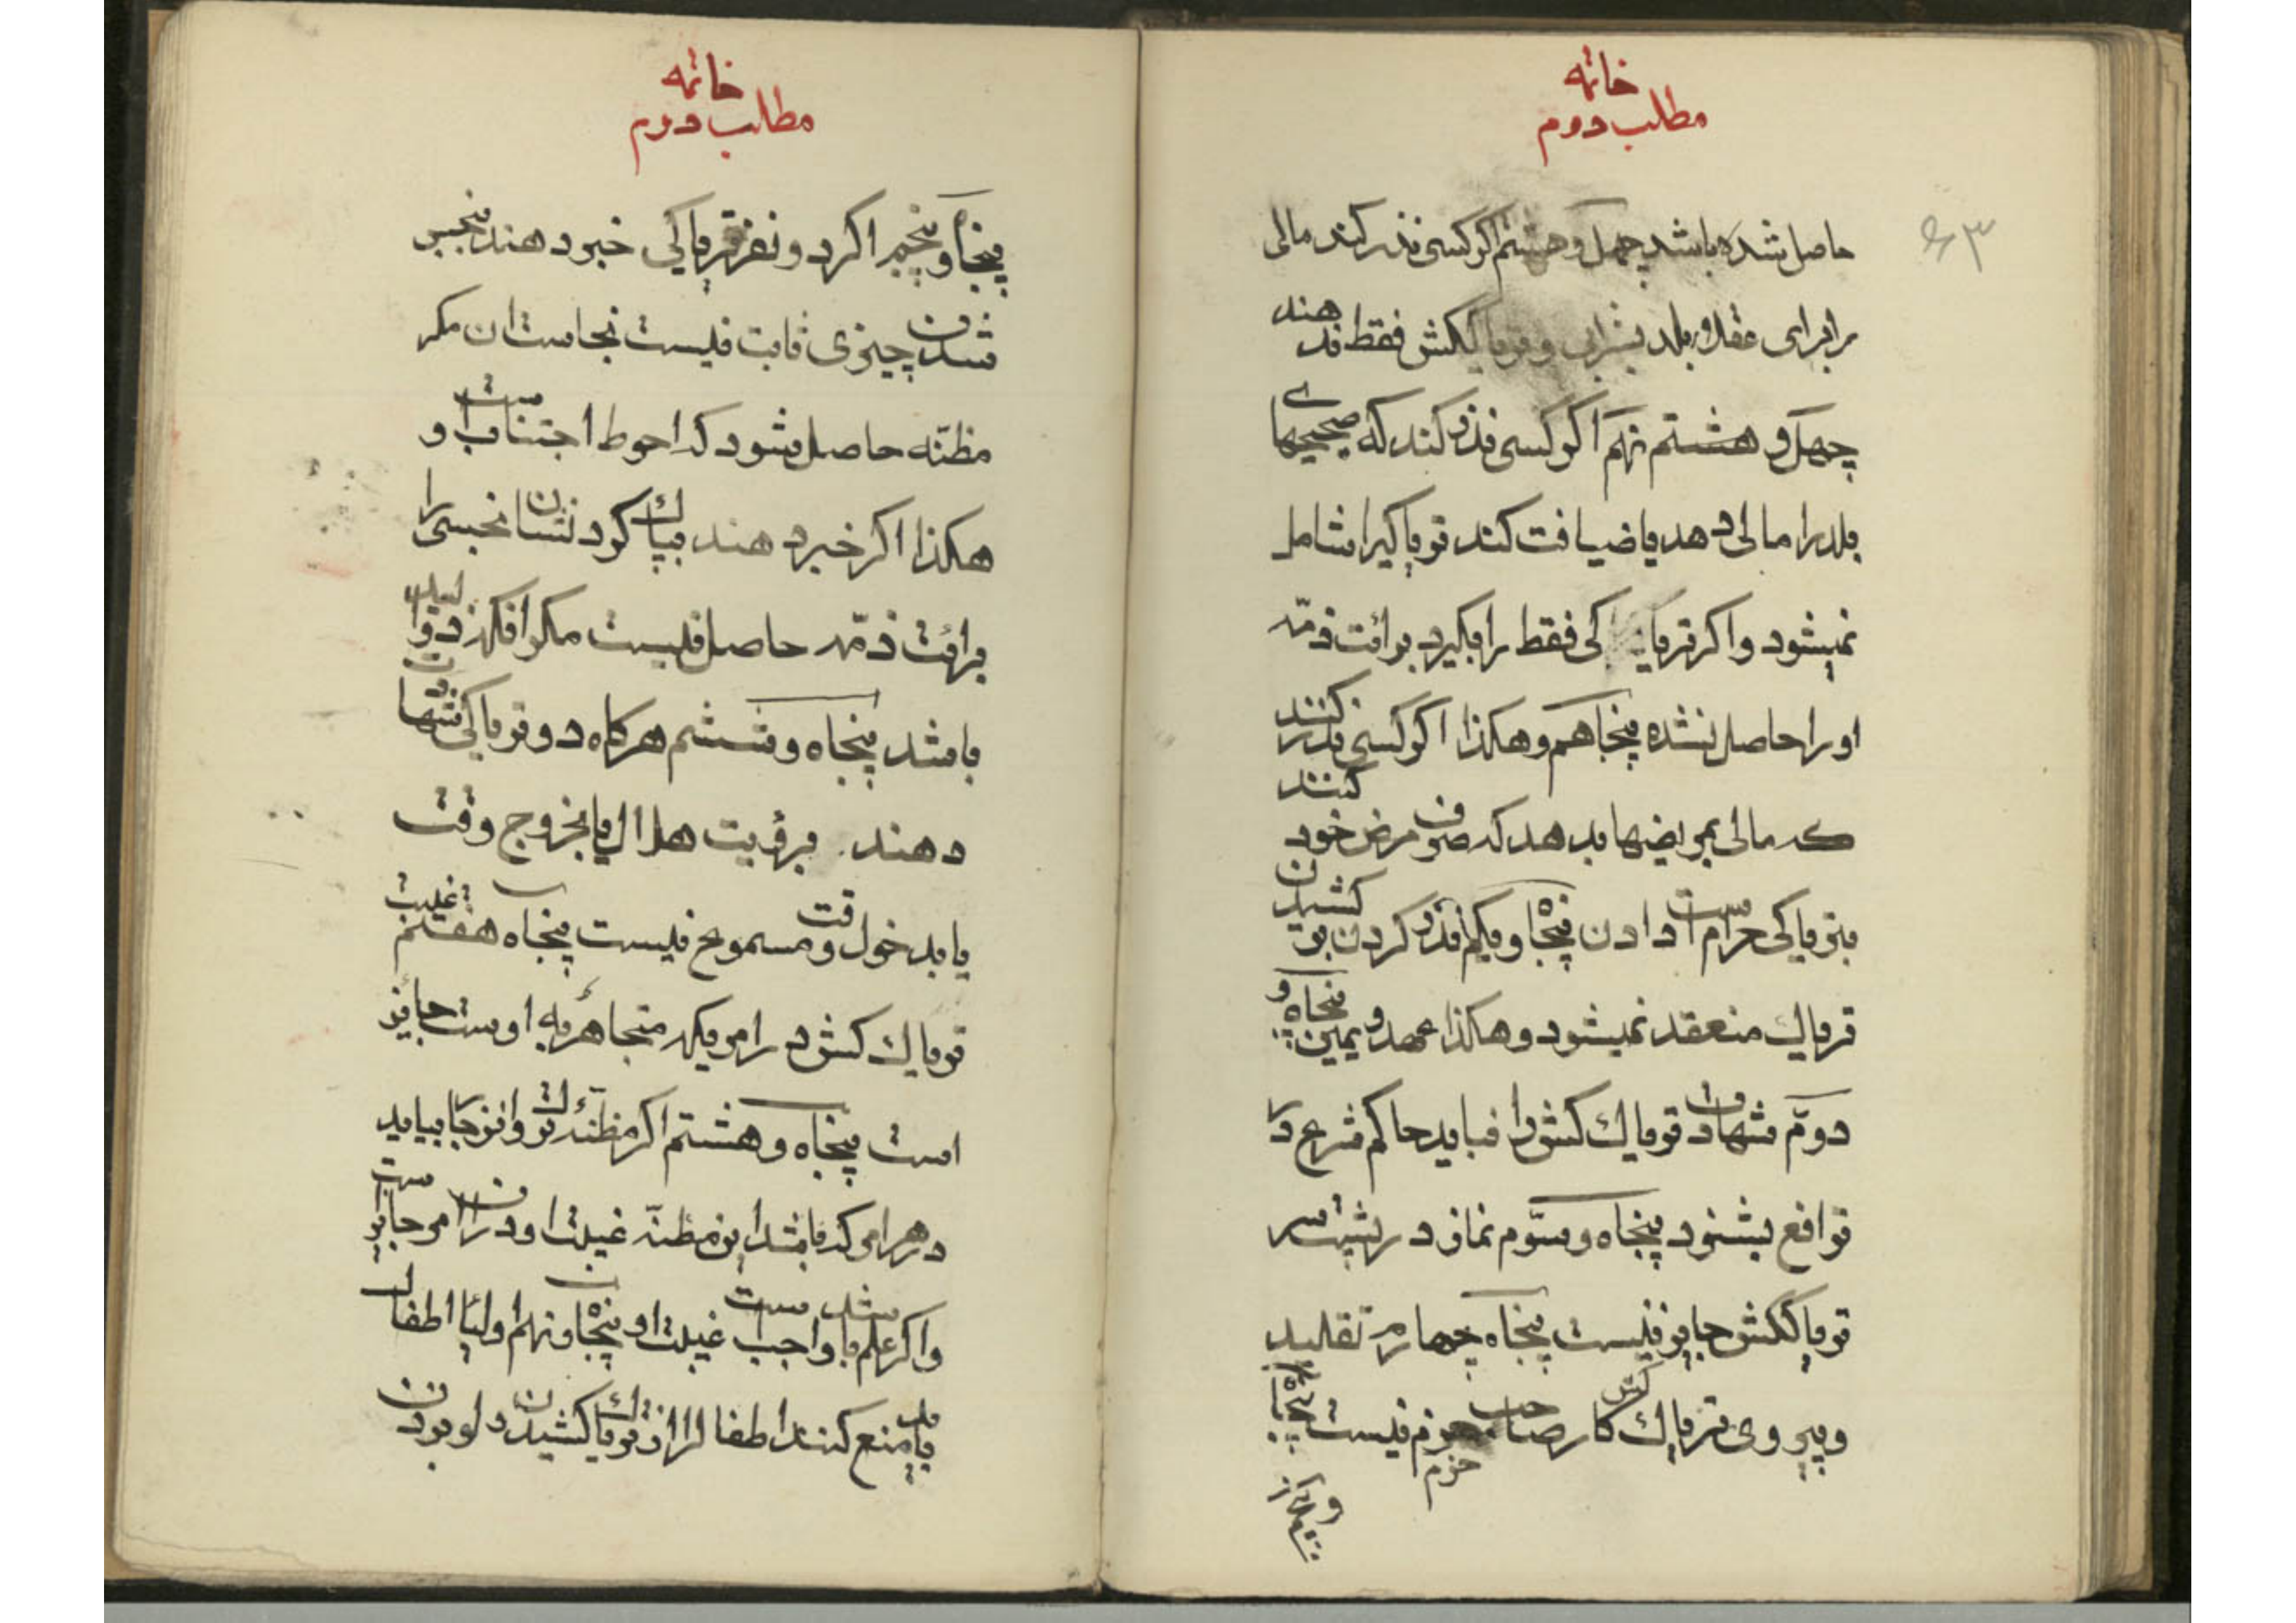 خاتمه
مطلب دوم
۶۳
حاصل شده باشد چهل و هشتم اگر کسی نذر کند مالی
را برای عقلاء بلد بشرابی و تریاککش فقط ندهند
چهل و هشتم نهم اگر کسی نذر کند که صحیحهای
بلد را مالی دهد یا ضیافت کند تریاکی را شامل
نمیشود و اگر تریاکی فقط را بگیرد برائت ذمّه
او را حاصل نشده پنجاهم و هکذا اگر کسی نذر کنند
که مالی بمریضها بدهد که صرف مرض خود کنند
بتریاکی حرام است دادن پنجاه و یکم نذر کردن بر کشیدن
تریاک منعقد نمیشود و هکذا عهد و یمین پنجاه و
دوّم شهادت تریاک کش را نباید حاکم شرع در
ترافع بشنود پنجاه و سّوم نماز در پشت سر
تریاککش جایز نیست پنجاه چهارم تقلید
و پیروی تریاک کش کار صاحب حزم نیست
حزم
خاتمه
مطلب دوم
پنجاه و پنجم اگر دو نفر تریاکی خبر دهند بنجس
شدن چیزی ثابت نیست نجاست ان مگر
مظنّه حاصل شود که احوط اجتناب است و
هکذا اگر خبر دهند بپاک کردنشان نجسی را
برائت ذمّه حاصل نیست مگر انکه ذو الید
باشد پنجاه و ششم هرگاه دو تریاکی شهادت
دهند برؤیت هلال یا بخروج وقت
یا بدخول وقت مسموع نیست پنجاه هفتم غیبت
تریاک کش در امریکه متجاهر به اوست جایز
است پنجاه و هشتم اگر مظنّه ترک نوافرجا بیاید
در هر امری که باشد این مظنّه غیبت او در ان امر جایز است
و اگر علم باشد واجب است غیبت او پنجاه و نهم اولیاء اطفال
باید منع کنند اطفال را از تریاک کشیدن و لو بزدن